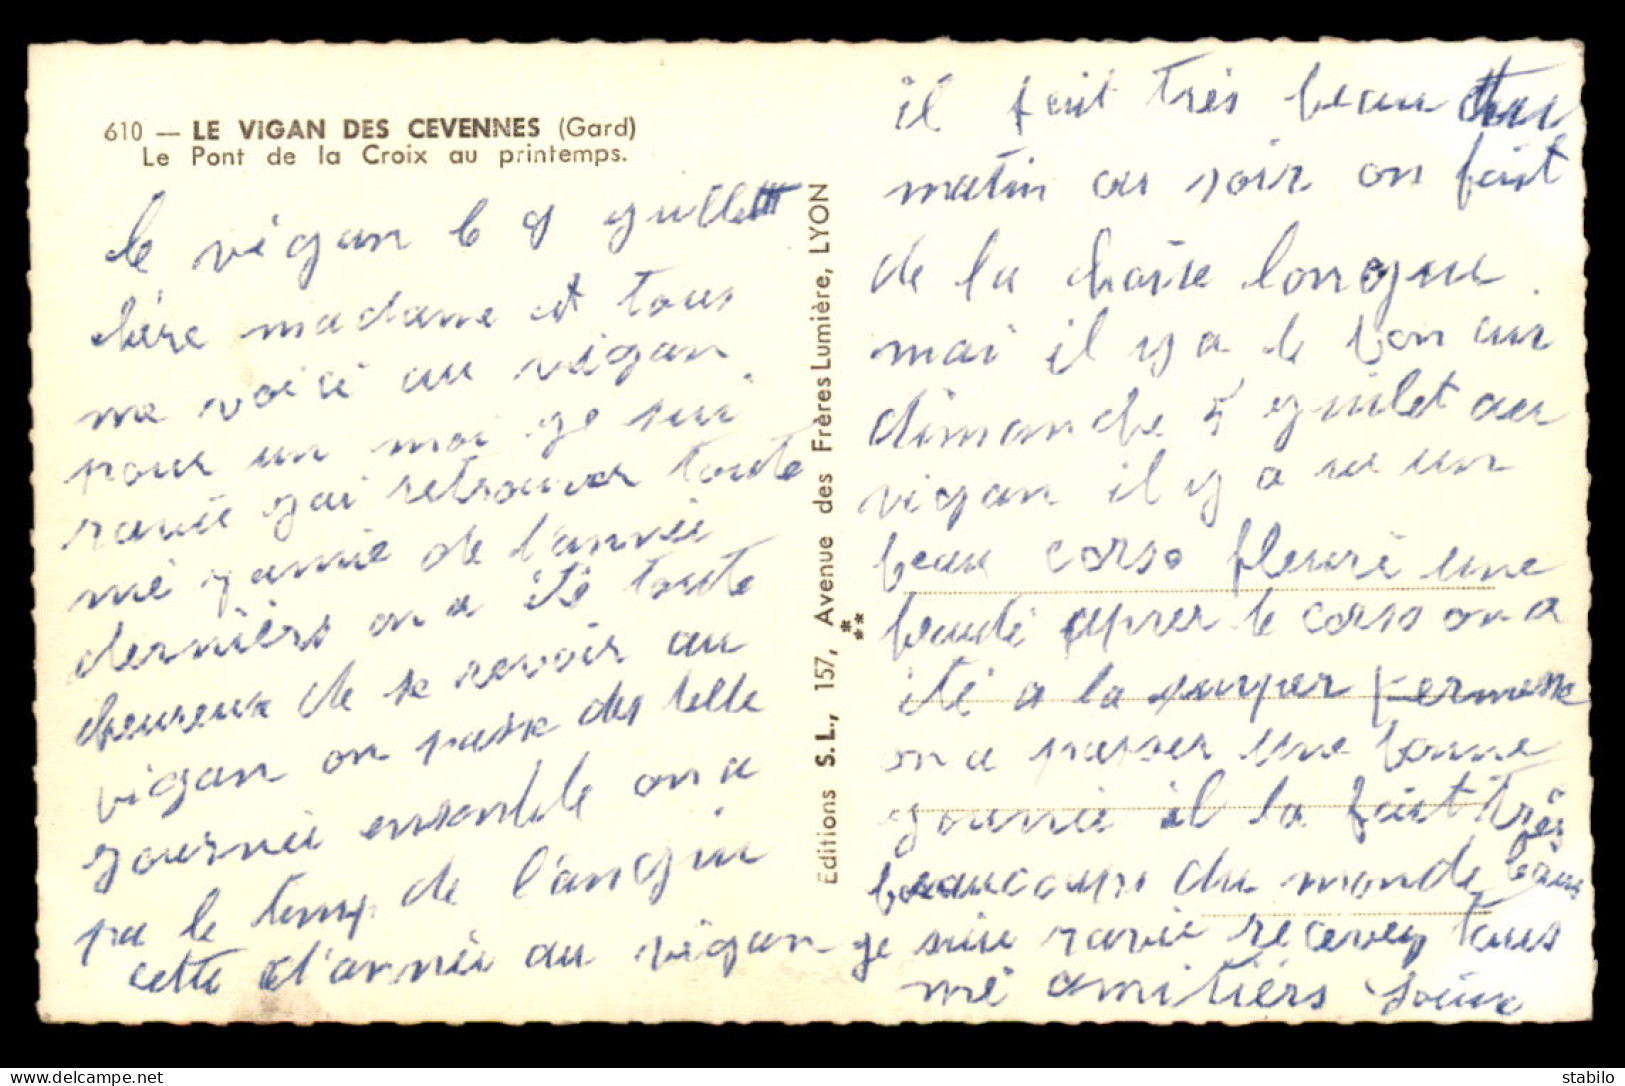 610 — LE VIGAN DES CEVENNES (Gard)
Le Pont de la Croix au printemps.
le vigan le 9
chère madame et tous
me voici au vigan
pour un moi ge sui
ravie gai retrouver toute
mé gamie de l'année
dernièrs on a ité toute
heureux de se revoir au
vigan on passe des belle
gournée ensemble on a
pa le temp de l'angui
cette d'année au vigan ge suie ravie recevez tous
mé amitiérs
Editions S.L., 157, Avenue des Frères Lumière, LYON
il fait très beau
matin au soir on fait
de la chaise longue
mai il y a le bon air
dimanche 5 guilet au
vigan il y a eu un
beau corso fleuri une
beauté aprer le corso on a
ité a la super fermesse
on a passer une bonne
gournée il la fait très
beaucoups du monde
stabilo